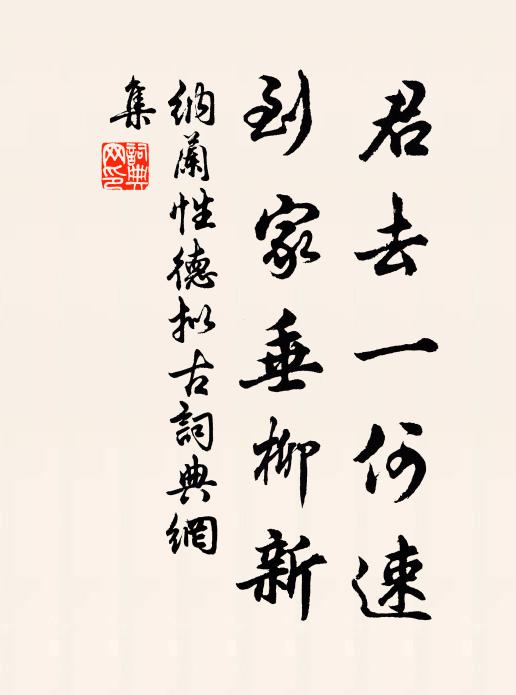 君去一何速
到家垂柳新
納蘭性德擬古詞典網
集
詞典
网印